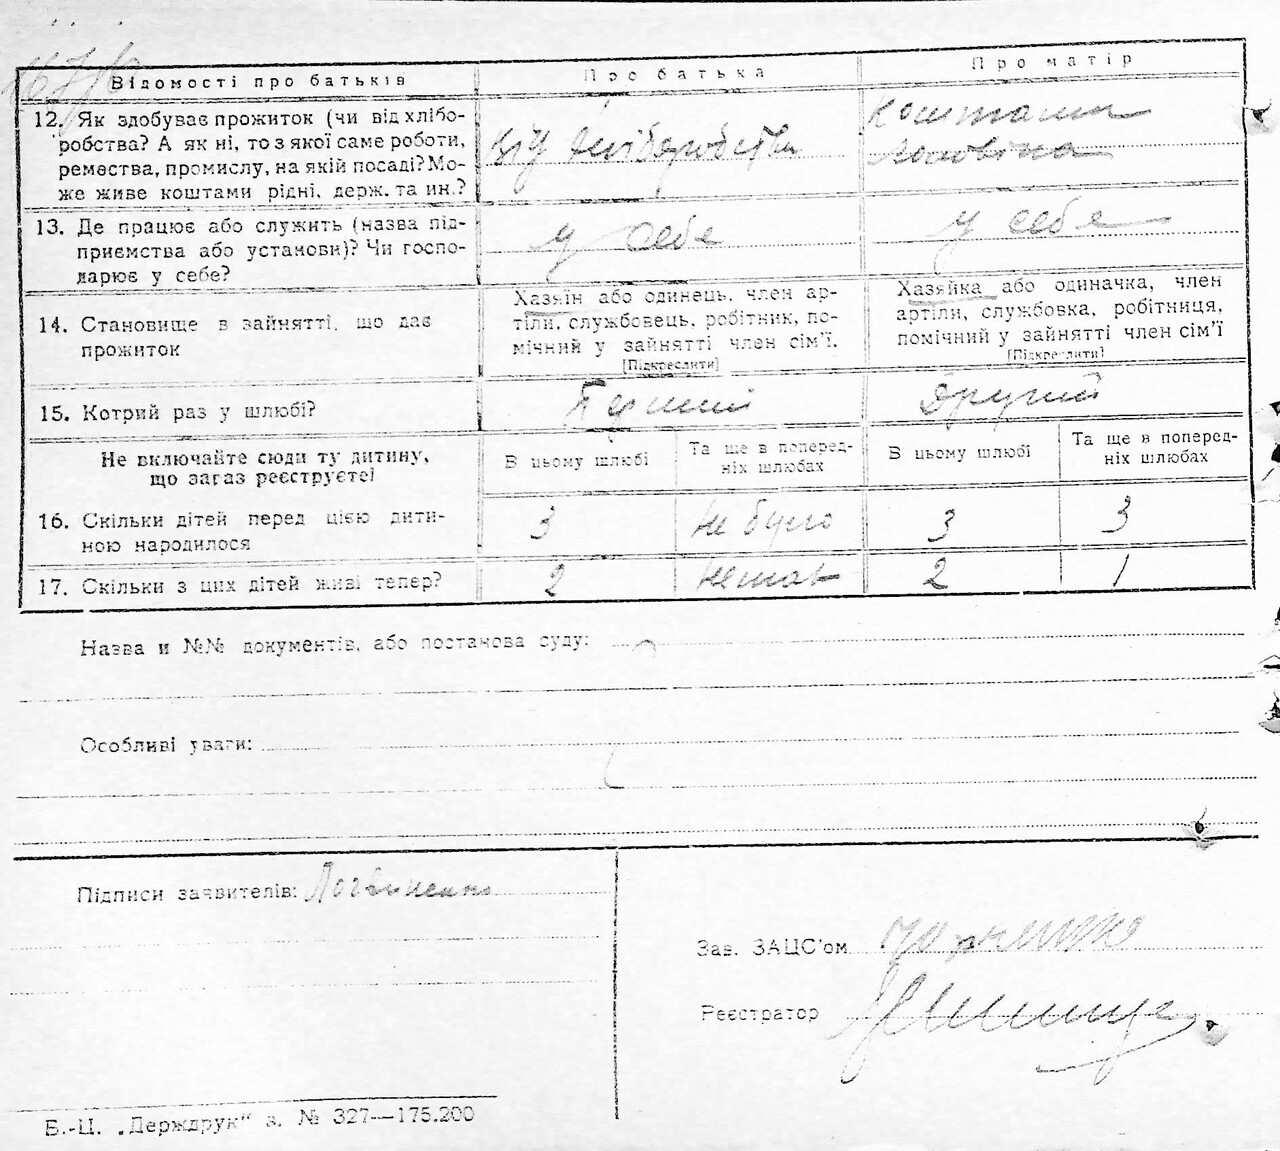 Відомості про батьків
Про батька
Про матір
12. Як здобуває прожиток (чи від хлібо-
робства? А як ні, то з якої саме роботи,
ремества, промислу, на якій посаді? Мо-
же живе коштами рідні, держ. та ин.?
Від хліборобства
Коштами
чоловіка
13. Де працює або служить (назва під-
приємства або установи)? Чи госпо-
дарює у себе?
у себе
у себе
14. Становище в зайнятті, що дає
прожиток
Хазяїн або одинець, член ар-
тілі, службовець, робітник, по-
мічний у зайнятті член сім'ї.
[Підкреслити]
Хазяйка або одиначка, член
артіли, службовка, робітниця,
помічний у зайнятті член сім'ї
[Підкреслити]
15. Котрий раз у шлюбі?
Перший
Другий
Не включайте сюди ту дитину,
що загаз реєструєте!
В цьому шлюбі
Та ще в поперед-
ніх шлюбах
В цьому шлюбі
Та ще в поперед-
ніх шлюбах
16. Скільки дітей перед цією дити-
ною народилося
3
Не було
3
3
17. Скільки з цих дітей живі тепер?
2
Немає
2
1
Назва и №№ документів, або постанова суду:
Особливі уваги:
Підписи заявителів: Логвиненко
Зав. ЗАЦС'ом
Реєстратор
Б.-Ц. „Держдрук" з. № 327—175.200